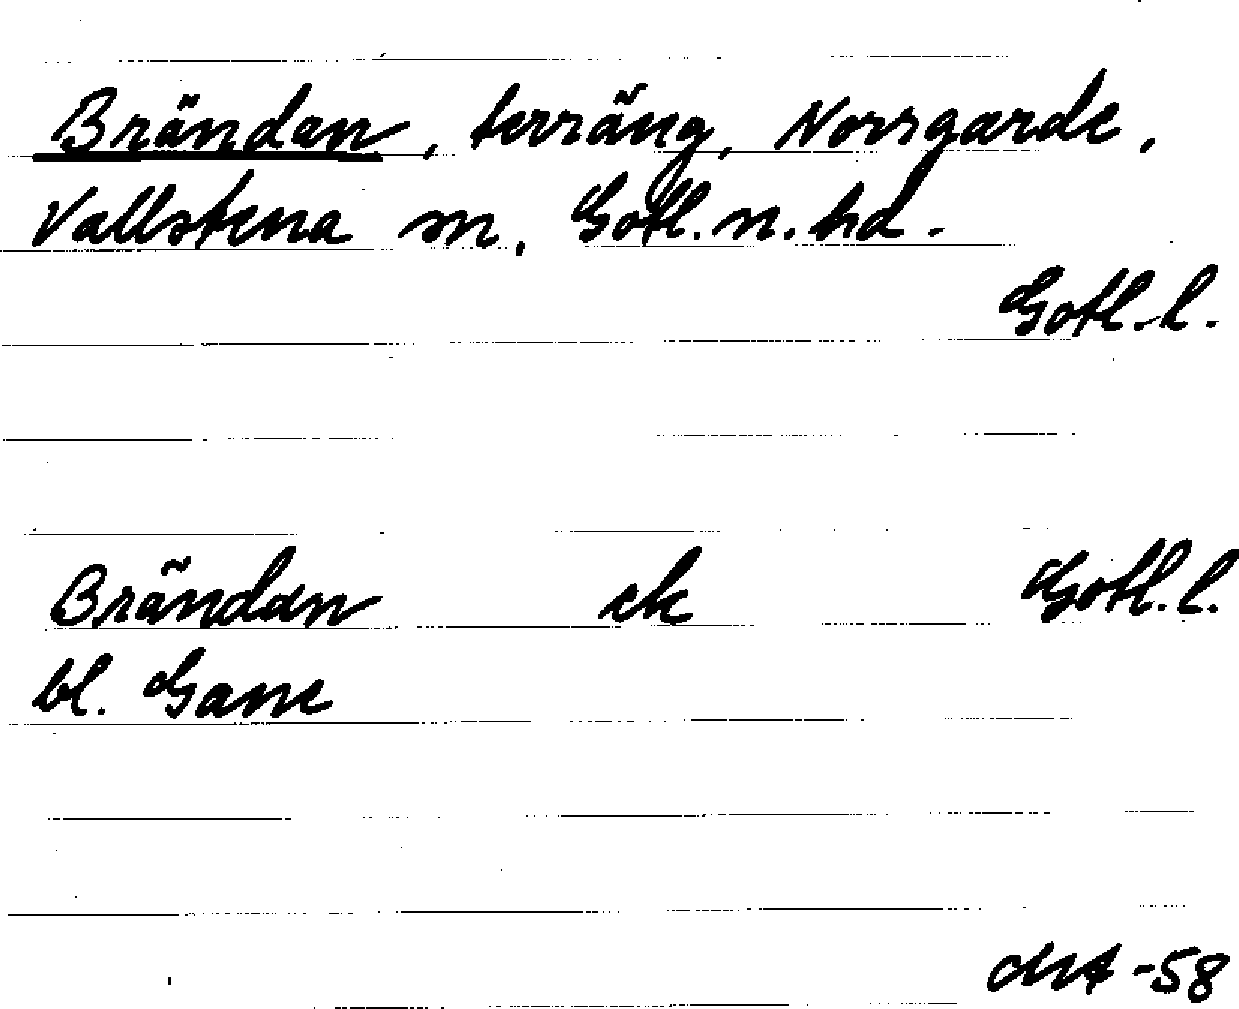 Brändan, terräng, Norrgarde,
Vallstena sn, Gotl. n. hd.
Gotl. l.
Brändan ek Gotl. l.
bl. Gane
-58